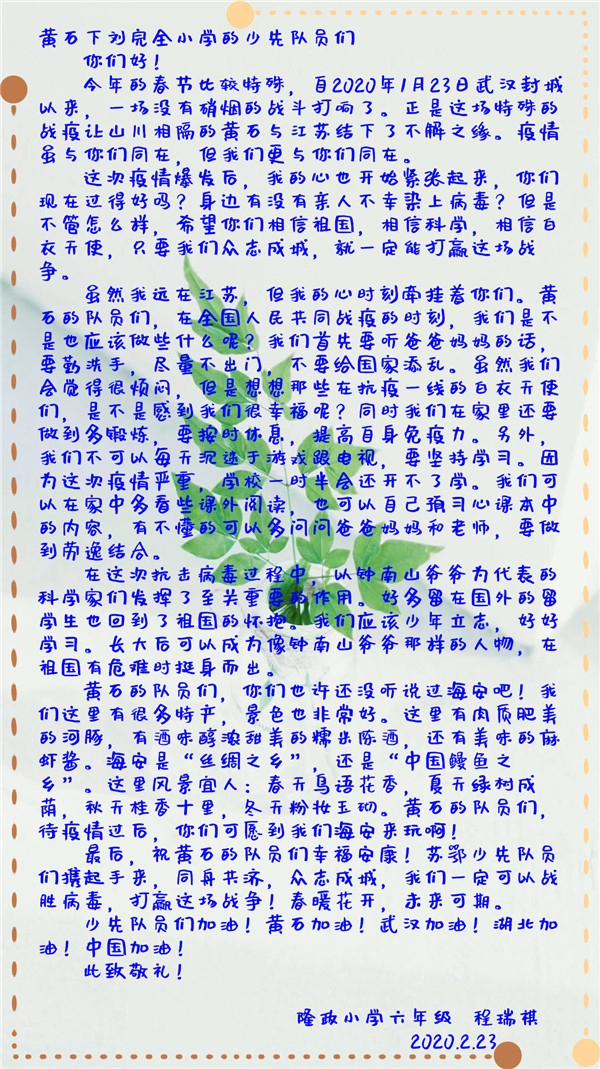 黄石下刘完全小学的少先队员们
你们好！
今年的春节比较特殊，自2020年1月23日武汉封城
以来，一场没有硝烟的战斗打响了。正是这场特殊的
战疫让山川相隔的黄石与江苏结下了不解之缘。疫情
虽与你们同在，但我们更与你们同在。
这次疫情爆发后，我的心也开始紧张起来，你们
现在过得好吗？身边有没有亲人不幸染上病毒？但是
不管怎么样，希望你们相信祖国，相信科学，相信白
衣天使，只要我们众志成城，就一定能打赢这场战
争。
虽然我远在江苏，但我的心时刻牵挂着你们。黄
石的队员们，在全国人民共同战疫的时刻，我们是不
是也应该做些什么呢？我们首先要听爸爸妈妈的话，
要勤洗手，尽量不出门，不要给国家添乱。虽然我们
会觉得很烦闷，但是想想那些在抗疫一线的白衣天使
们，是不是感到我们很幸福呢？同时我们在家里还要
做到多锻炼，要按时休息，提高自身免疫力。另外，
我们不可以每天沉迷于游戏跟电视，要坚持学习。因
为这次疫情严重，学校一时半会还开不了学。我们可
以在家中多看些课外阅读，也可以自己预习心课本中
的内容，有不懂的可以多问问爸爸妈妈和老师，要做
到劳逸结合。
在这次抗击病毒过程中，以钟南山爷爷为代表的
科学家们发挥了至关重要的作用。好多留在国外的留
学生也回到了祖国的怀抱。我们应该少年立志，好好
学习。长大后可以成为像钟南山爷爷那样的人物，在
祖国有危难时挺身而出。
黄石的队员们，你们也许还没听说过海安吧！我
们这里有很多特产，景色也非常好。这里有肉质肥美
的河豚，有酒味醇浓甜美的糯米陈酒，还有美味的麻
虾酱。海安是“丝绸之乡”，还是“中国鳗鱼之
乡”。这里风景宜人：春天鸟语花香，夏天绿树成
荫，秋天桂香十里，冬天粉妆玉砌。黄石的队员们，
待疫情过后，你们可愿到我们海安来玩啊！
最后，祝黄石的队员们幸福安康！苏鄂少先队员
们携起手来，同舟共济，众志成城，我们一定可以战
胜病毒，打赢这场战争！春暖花开，未来可期。
少先队员们加油！黄石加油！武汉加油！湖北加
油！中国加油！
此致敬礼！
隆政小学六年级 程瑞祺
2020.2.23